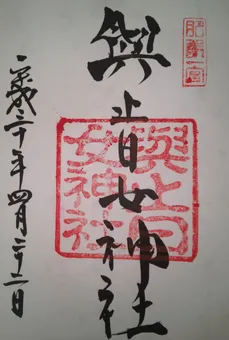 肥前一宮
與止日女神社
與止日
女神社
平成二十年四月二十二日